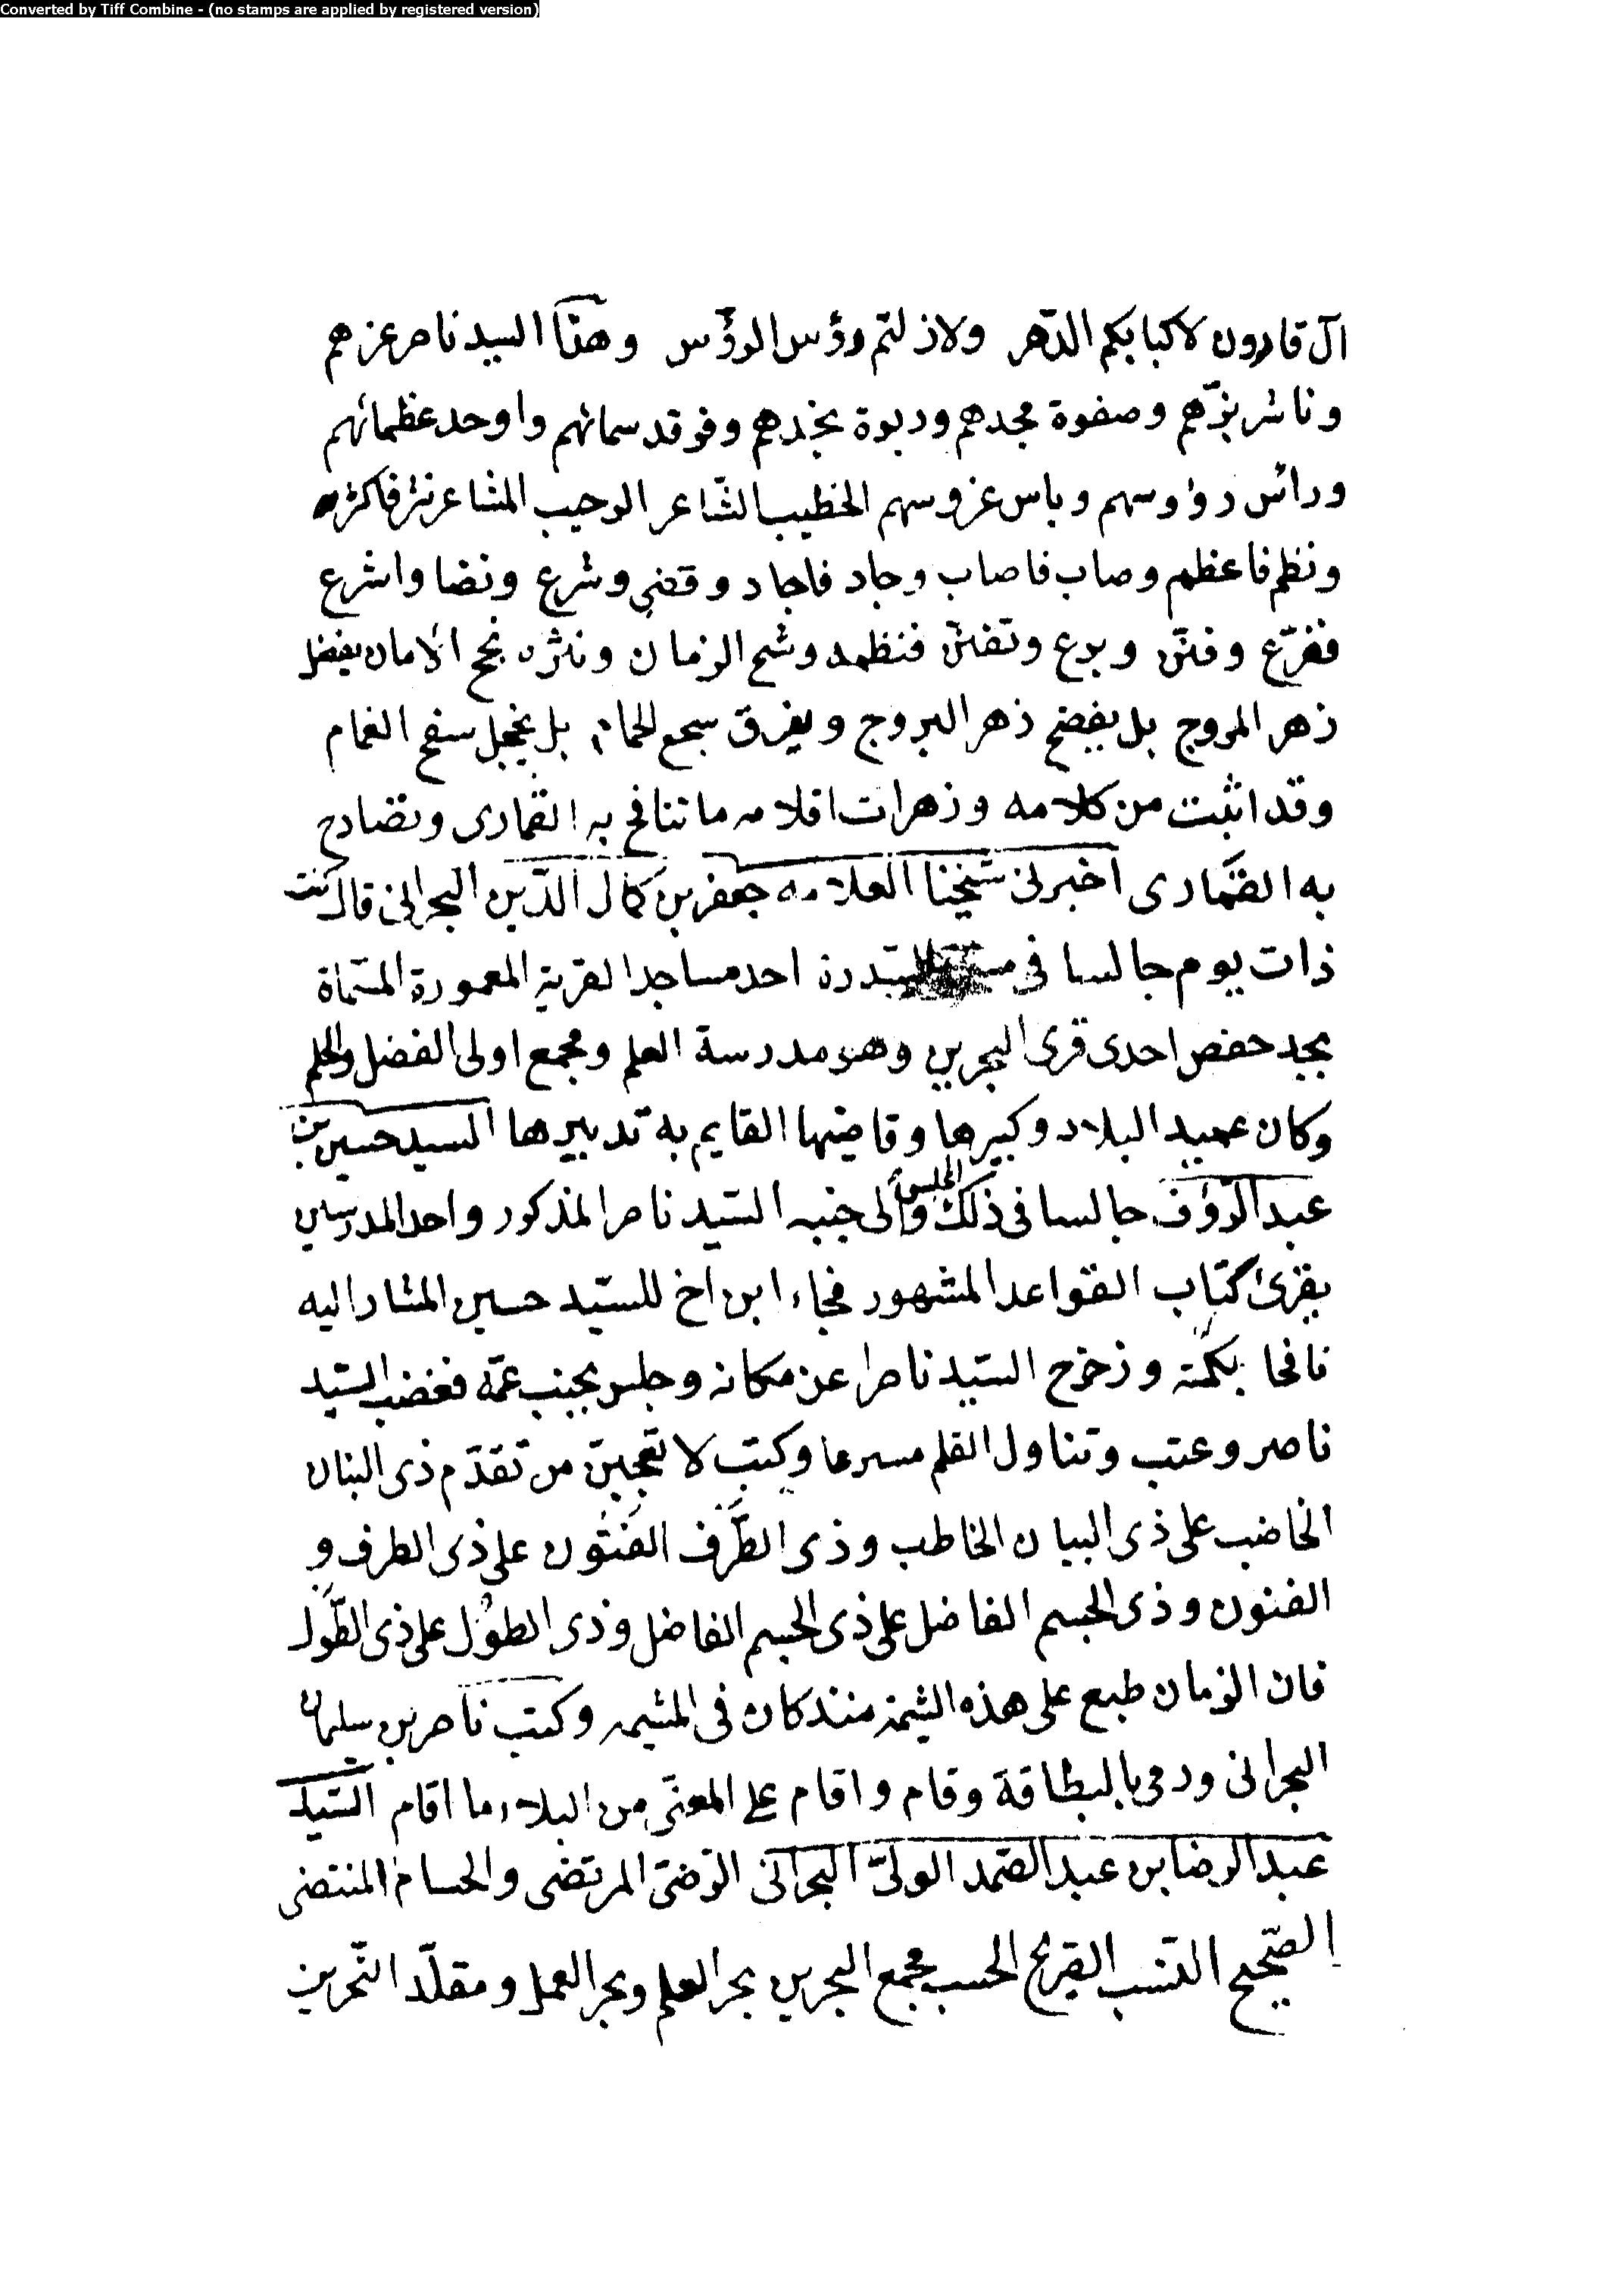 Converted by Tiff Combine - (no stamps are applied by registered version)
آل قارون لا كبا بكم الدّهر ولا ذلتم رؤس الرؤس وهذا السيد ناصر عزهم
وناشر بزّهم وصفوة مجدهم وربوة نجدهم وفرقد سمائهم واوحد عظمائهم
ورائس رؤوسهم وباس غروسهم الخطيب الشّاعر الرحيب المشاعر نثر فاكثر
ونظم فاعظم وصاب فاصاب وجاد فاجاد وقضى وشرع ونضا واشرع
ففرّع وفنّن وبرع وتفنّن فنظمه وشح الزمان ونثره نجح الامان يفضل
زهر المروج بل يفضح زهر البروج ويفرق سجع الحمام بل يخجل سفح الغمام
وقد اثبت من كلامه وزهرات اقلامه ما تنافح به القمارى وتضادح
به القمارى اخبرنى شيخنا العلامه جعفر بن كمال الدّين البحرانى قال كنت
ذات يوم جالسا فى السّدرة احد مساجد القرية المعمورة المسمّاة
بجد حفص احدى قرى البحرين وهو مدرسة العلم ومجمع اولى الفضل والحلم
وكان عميد البلاد وكبيرها وقاضيها القايم به تدبيرها السيد حسين بن
عبد الرّؤف جالسا فى ذلك المجلس والى جنبه السّيد ناصر المذكور واحد المدرسين
يقرئ كتاب القواعد المشهور فجاء ابن اخ للسّيد حسين المشار اليه
نافحا بكمّه وزحزح السّيد ناصرا عن مكانه وجلس بجنب عمّه فغضب السّيد
ناصر وعتب وتناول القلم مسرعا وكتب لا تعجبن من تقدّم ذى البنان
الخاضب على ذى البيان الخاطب وذى الطَّرف الفَتُون على ذى الطرف و
الفنون وذى الجسم الفاضل على ذى الجسم الفاضل وذى الطُول على ذى الطَّول
فان الزمان طبع على هذه الشيمة منذ كان فى المشيمه وكتب ناصر بن سليمان
البحرانى ورمى بالبطاقة وقام واقام على المعنّى من البلاء ما اقام السّيد
عبد الرضا بن عبد الصّمد الولىّ البحرانى الرّضىّ المرتضى والحسام المنتضى
الصّحيح النّسب القريح الحسب مجمع البحرين بحر العلم وبحر العمل ومقلّد النّحرين